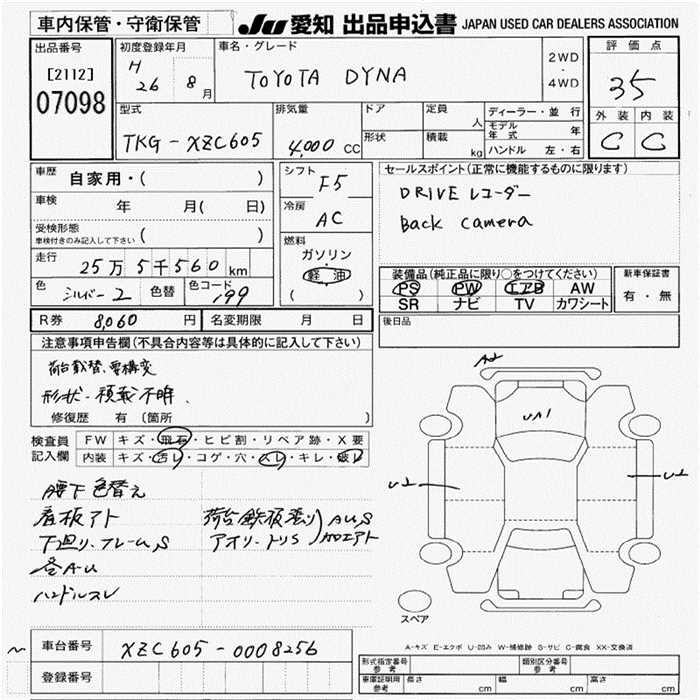 車内保管・守衛保管
JU 愛知 出品申込書 JAPAN USED CAR DEALERS ASSOCIATION
出品番号
[2112]
07098
初度登録年月
H 26 8月
車名・グレード
TOYOTA DYNA
2WD
・
4WD
評価点
3.5
外装 内装
C C
型式
TKG-XZC605
排気量
4,000 CC
ドア
形状
定員 人
積載 kg
ディーラー・並行
モデル年式 年
ハンドル 左・右
車歴 自家用・( )
車検 年 月( 日)
受検形態
車検付きのみ記入して下さい ( )
走行 25万5千560km
色 シルバー2 色替 色コード 199
シフト F5
冷房 AC
燃料
ガソリン
軽油
( )
セールスポイント(正常に機能するものに限ります)
DRIVE レコーダー
Back camera
装備品(純正品に限り○をつけてください)
PS PW エアB AW
SR ナビ TV カワシート
新車保証書
有・無
R券 8,060円 名変期限 月 日
後日品
注意事項申告欄(不具合内容等は具体的に記入して下さい)
荷台載替、要構変
形状・積載不明、
修復歴 有 〔箇所 〕
検査員記入欄
FW キズ・飛石・ヒビ割・リペア跡・X要
内装 キズ・汚レ・コゲ・穴・スレ・キレ・破レ
腰下色替え
看板アト 荷台鉄板張り AU,S
下廻り、フレームS アオリ、トリS 加エアト
各A-U
ハンドルスレ
A2
UA1
U1
U1
スペア
A-キズ E-エクボ U-凹み W-補修跡 S-サビ C-腐食 XX-交換済
車台番号 XZC605-0008256
登録番号
形式指定番号 参考
類別区分番号 参考
車庫証明用 参考 長さ cm 幅 cm 高さ cm